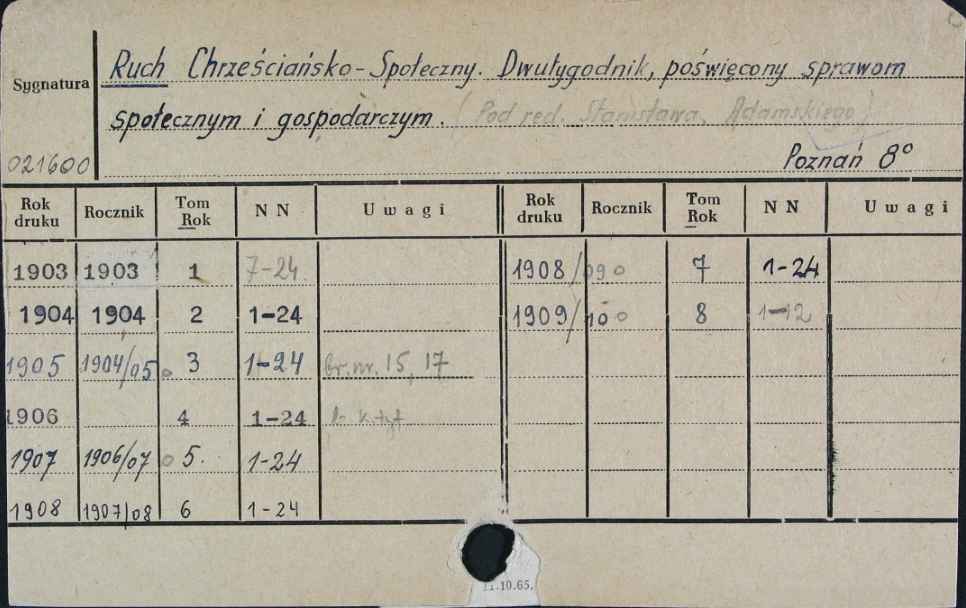 Ruch Chrześciańsko-Społeczny. Dwutygodnik, poświęcony sprawom
Sygnatura
społecznym i gospodarczym. (Pod red. Stanisława Adamskiego)
021600
Poznań 8°
Rok druku Rocznik Tom Rok NN Uwagi Rok druku Rocznik Tom Rok NN Uwagi
1903 1903 1 7-24 1908/09 7 1-24
1904 1904 2 1-24 1909/10 8 1-12
1905 1904/05 3 1-24 br. nr. 15, 17
1906 4 1-24
1907 1906/07 5. 1-24
1908 1907/08 6 1-24
11.10.65.